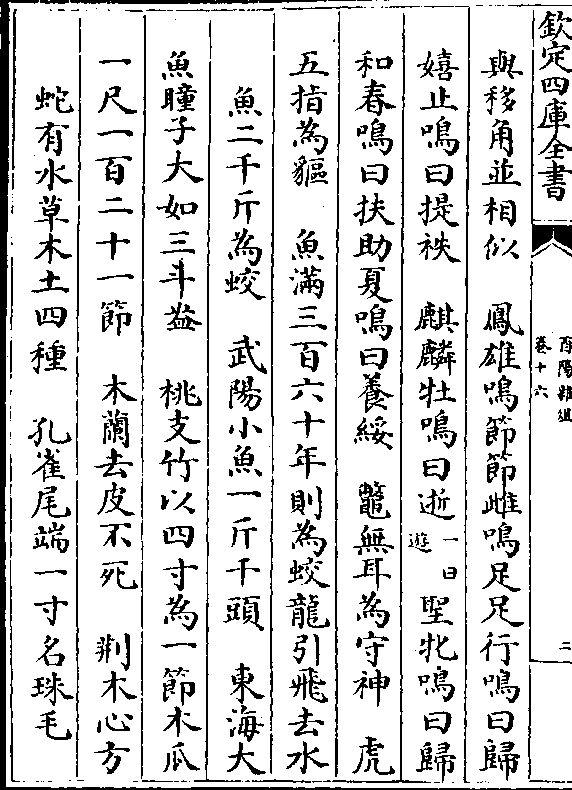 欽定四庫全書
酉陽雜俎
卷十六
三
與移角並相似　鳳雄鳴節節雌鳴足足行鳴曰歸
嬉止鳴曰提袂　麒麟牡鳴曰逝一曰遊聖牝鳴曰歸
和春鳴曰扶助夏鳴曰養綏　鼈無耳為守神　虎
五指為貙　魚滿三百六十年則為蛟龍引飛去水
魚二千斤為蛟　武陽小魚一斤千頭　東海大
魚瞳子大如三斗盎　桃支竹以四寸為一節木瓜
一尺一百二十一節　木蘭去皮不死　荆木心方
蛇有水草木土四種　孔雀尾端一寸名珠毛